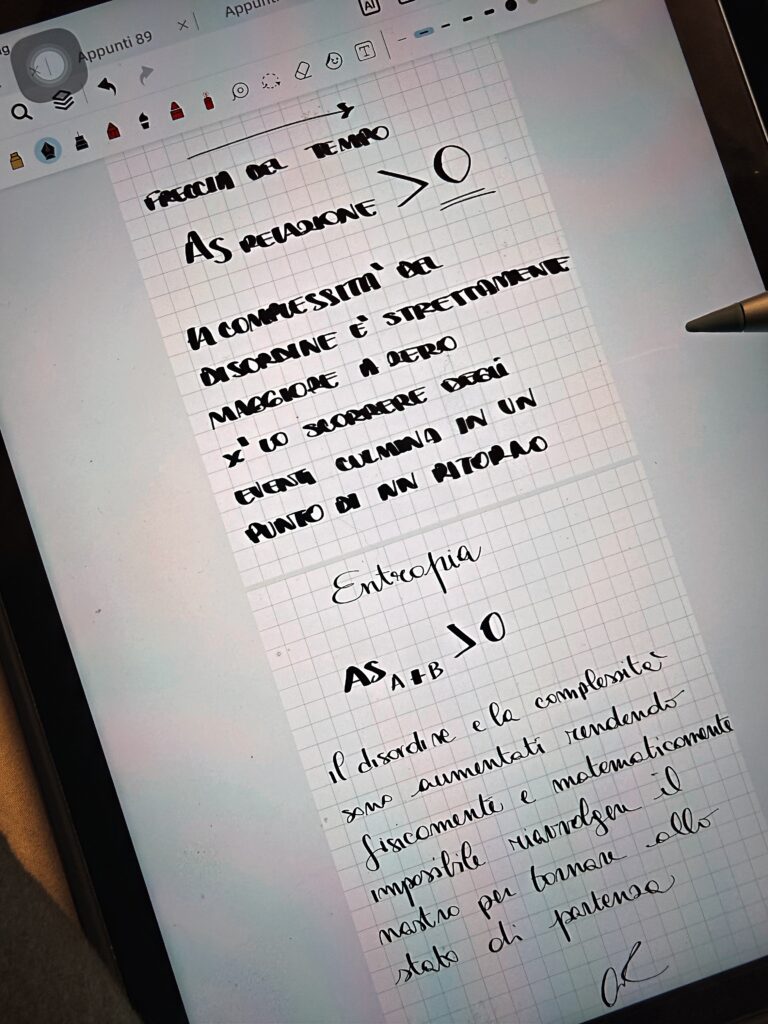 Appunti 89
Appunti
AI
T
FRECCIA DEL TEMPO
AS RELAZIONE >0
LA COMPLESSITA' DEL
DISORDINE E' STRETTAMENTE
MAGGIORE A ZERO
X' LO SCORRERE DEGLI
EVENTI CULMINA IN UN
PUNTO DI NN RITORNO
Entropia
AS A+B >0
il disordine e la complessità
sono aumentati rendendo
fisicamente e matematicamente
impossibile riavvolgere il
nastro per tornare allo
stato di partenza